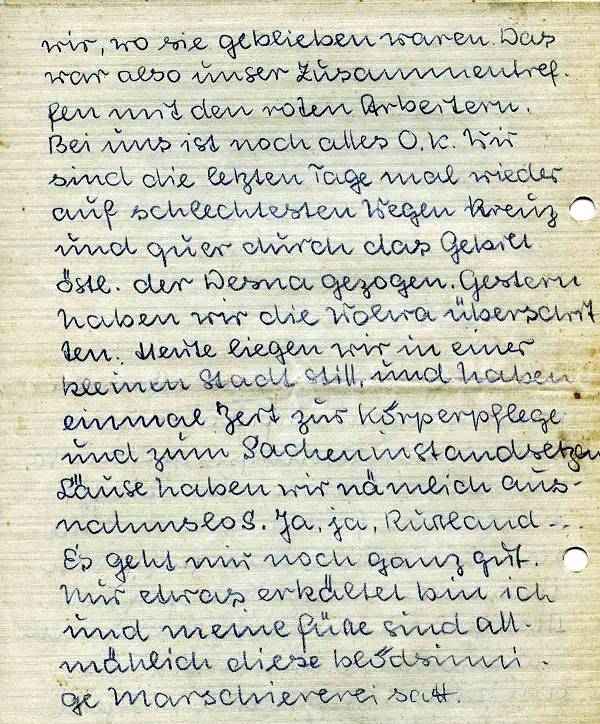 wir, wo sie geblieben waren. Das
war also unser Zusammentref-
fen mit den roten Arbeitern.
Bei uns ist noch alles O.K. Wir
sind die letzten Tage mal wieder
auf schlechtesten Wegen kreuz
und quer durch das Gebiet
östl. der Desna gezogen. Gestern
haben wir die Wolwa überschrit
ten. Heute liegen wir in einer
kleinen Stadt still, und haben
einmal Zeit zur Körperpflege
und zum Sacheninstandsetzen
Läuse haben wir nämlich aus-
nahmslos. Ja, ja, Rußland -..
Es geht mir noch ganz gut.
Nur etwas erkältet bin ich
und meine Füße sind all-
mählich diese blödsinni-
ge Marschiererei satt.